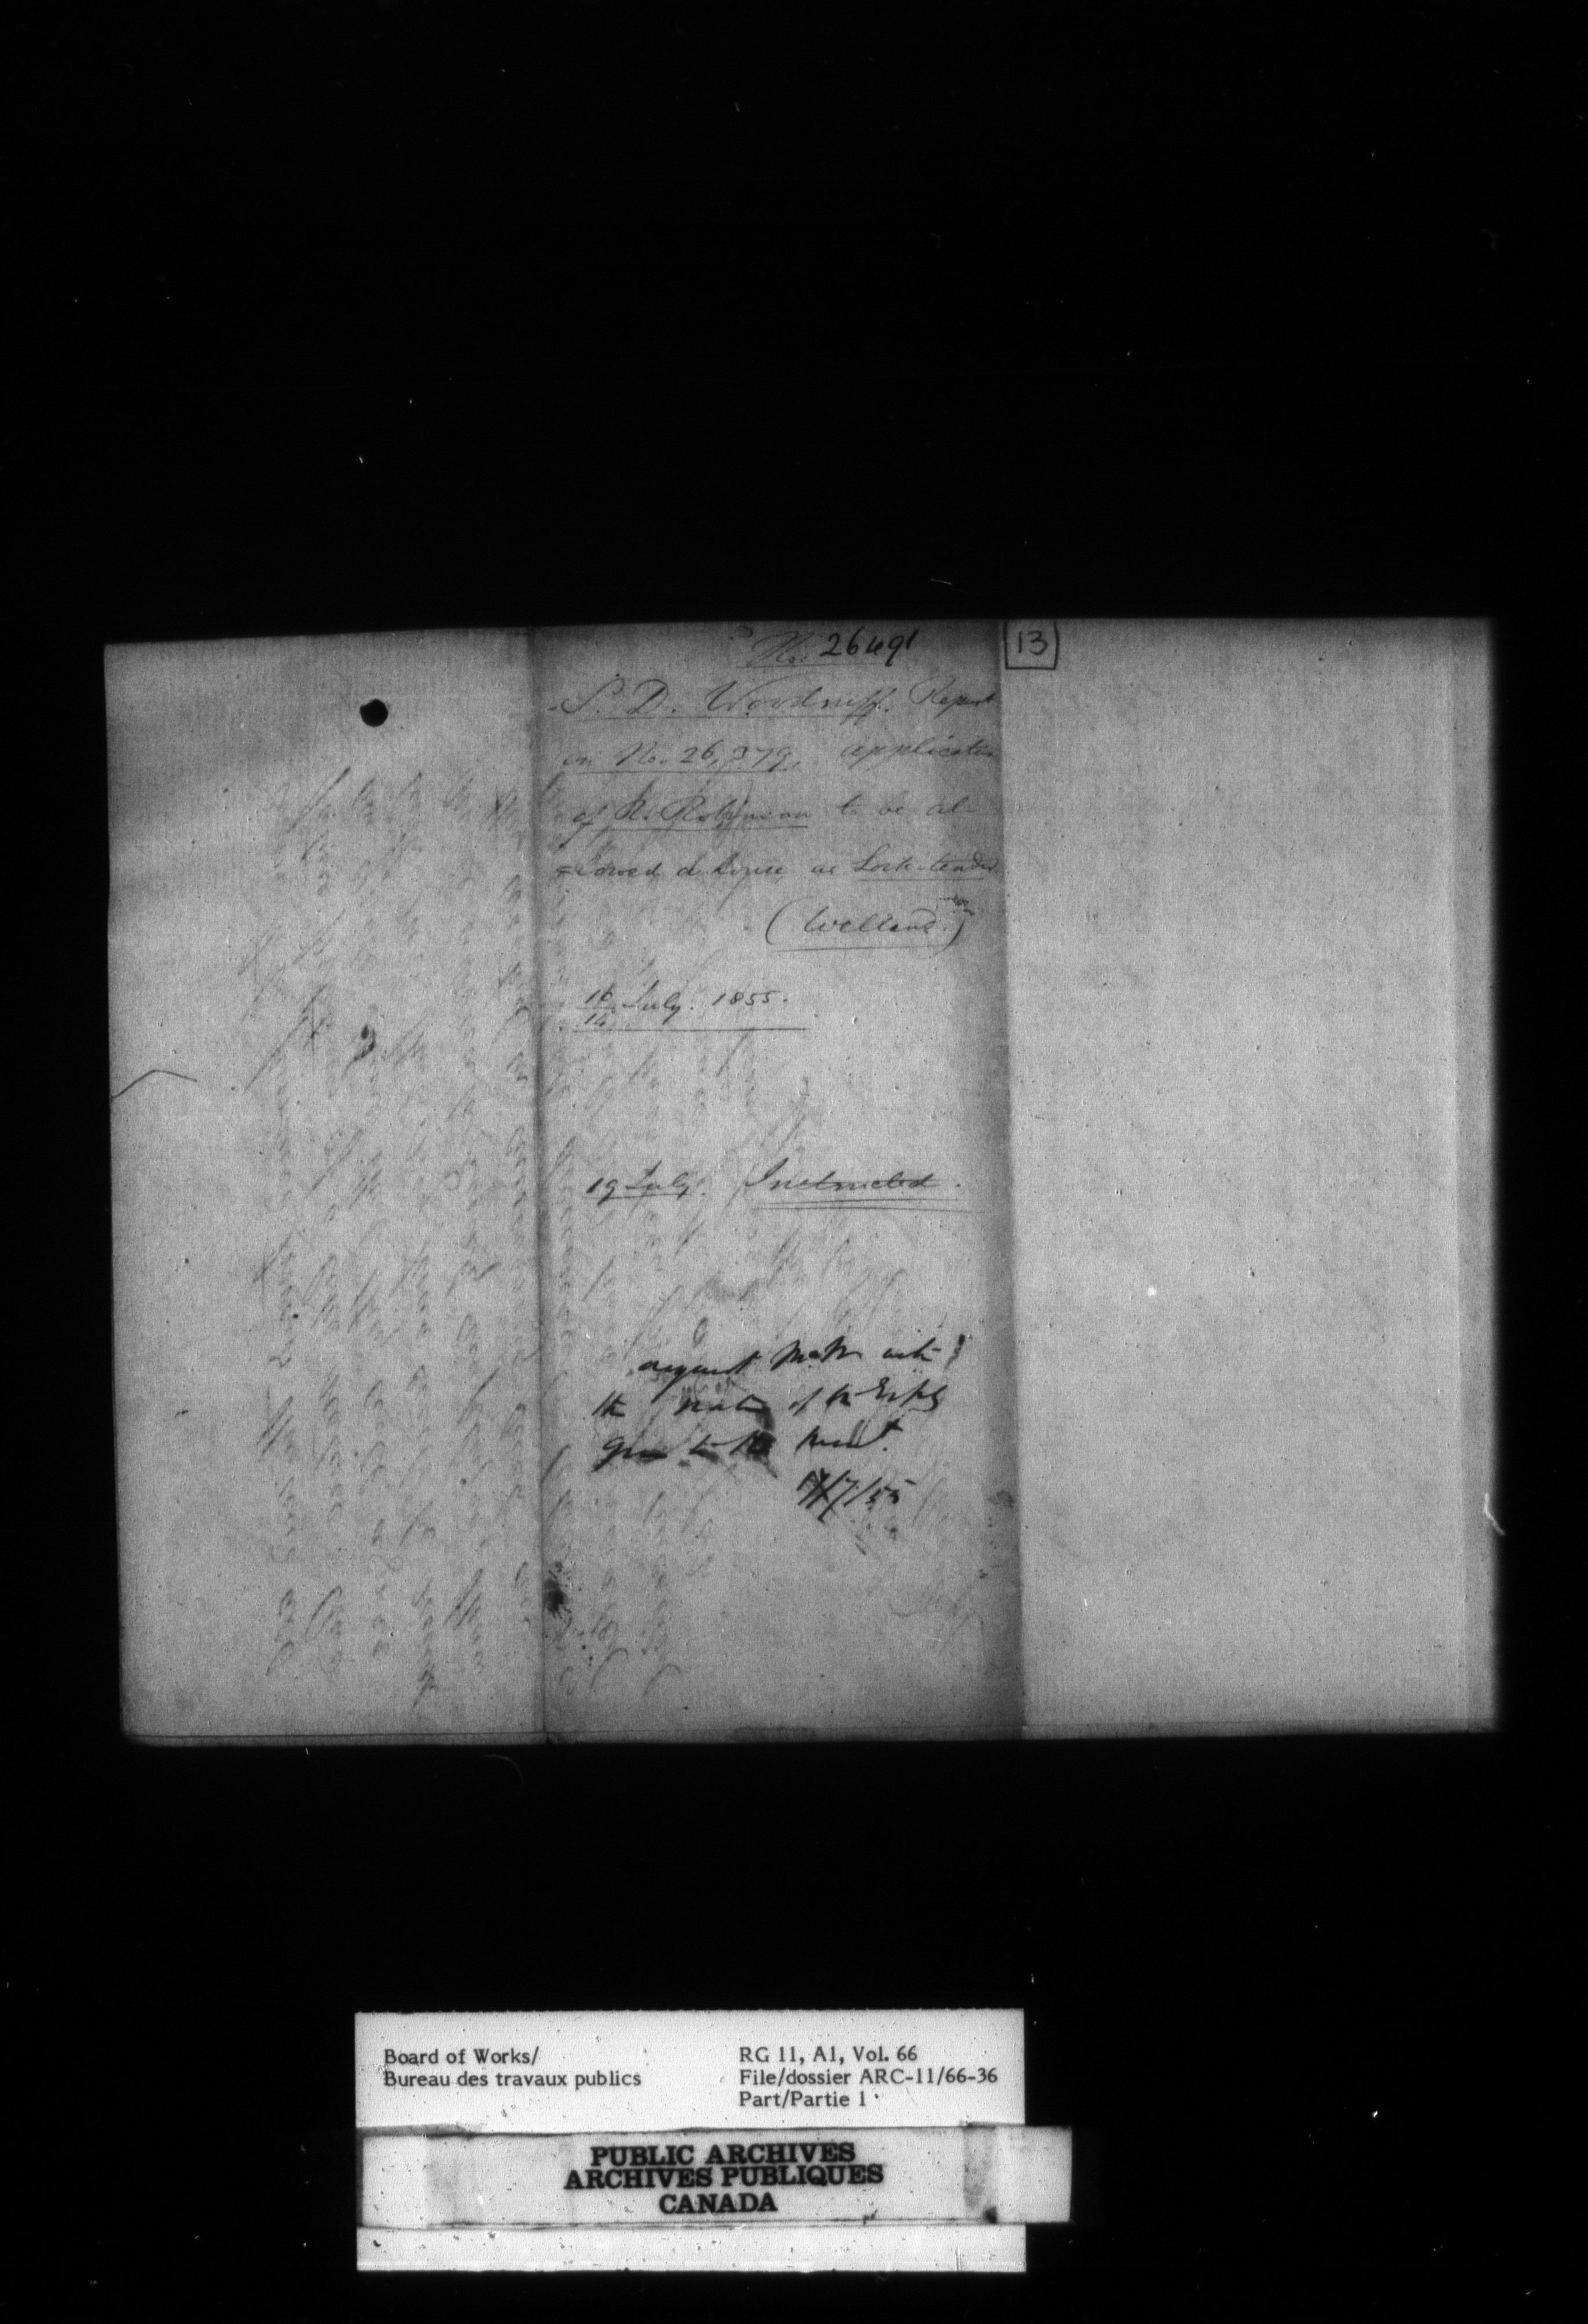 No. 26491
13
S. D. Woodruff. Report
on No. 26,379, application
of R. Robinson to be al-
=lowed a house as Lock-tender
(Welland.)
16 July. 1855.
14
19 July. Instructed.
the of the
17/7/55
Board of Works/
Bureau des travaux publics
RG 11, A1, Vol. 66
File/dossier ARC-11/66-36
Part/Partie 1
PUBLIC ARCHIVES
ARCHIVES PUBLIQUES
CANADA